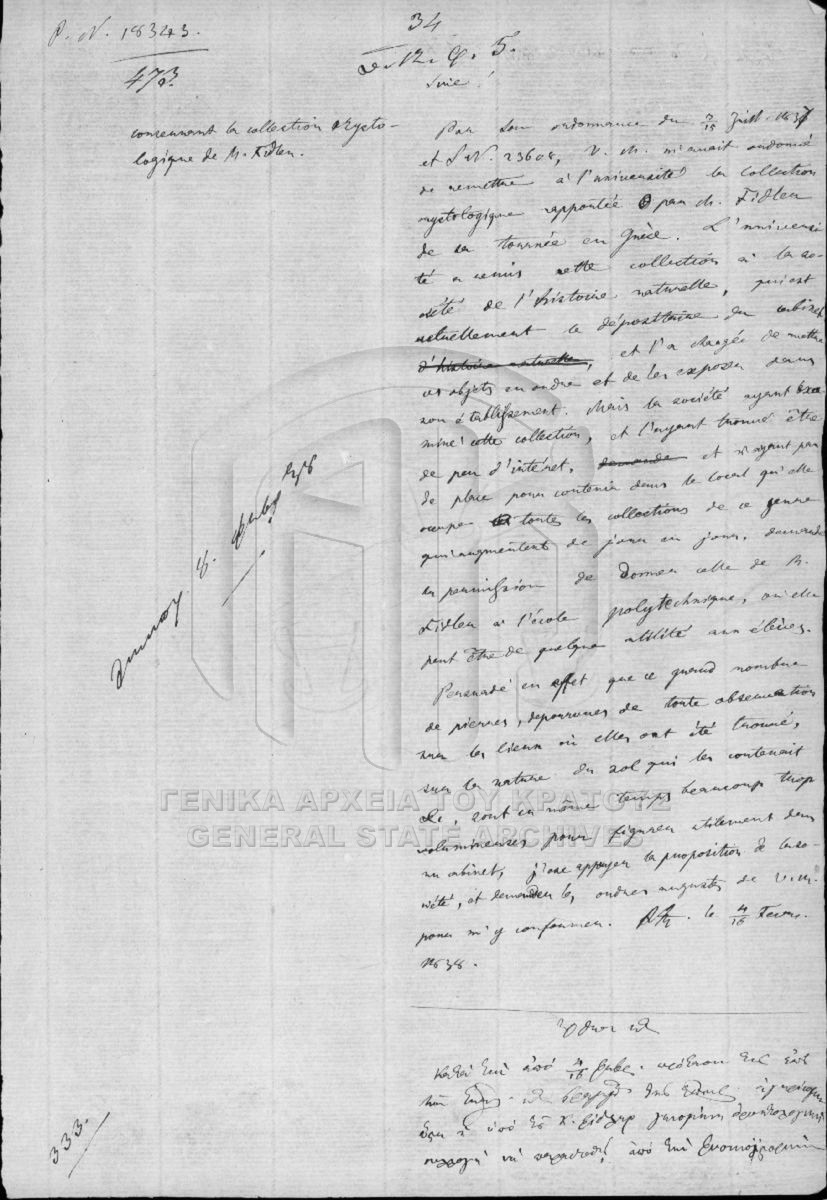 P. N. 18343.
473.
34
Φ. 5.
Sire!
concernant la collection oryctologique
de M. Fidler.
Par Son ordonnance du 3/15 Juill. 1837
et S.N. 23608, V. M. m'avait ordonné
de remettre à l'université la collection
oryctologique rapportée par M. Fidler
de sa tournée en Grèce. L'universi
té a remis cette collection à la so-
ciété de l'histoire naturelle, qui est
actuellement le dépositaire du cabinet
d'histoire naturelle, et l'a chargée de mettre
ces objets en ordre et de les exposer dans
son établissement. Mais la société ayant exa
miné cette collection, et l'ayant trouvé être
de peu d'intérêt, demande et n'ayant pas
de place pour contenir dans le local qu'elle
occupe toutes les collections de ce genre
qui augmentent de jour en jour, demande
la permission de donner celle de M.
Fidler à l'école polytechnique, où elle
peut être de quelque utilité aux élèves.
Persuadé en effet que ce grand nombre
de pierres, depourvues de toute observation
sur les lieux où elles ont été trouvé,
sur la nature du sol qui les contenait
&c, sont en même temps beaucoup trop
volumineuses pour figurer utilement dans
un cabinet, j'ose appuyer la proposition de la so-
ciété, et demander les ordres augustes de V. M.
pour m'y conformer. Ath. le 4/16 Fevr.
1838.
Ὄθων κλ
Κατὰ τὴν ἀπὸ 4/16 Φεβρ. πρότασιν τῆς ἐπὶ
τῶν
ὑπὸ τοῦ Κ. Φίδλερ γενομένη ὀρυκτολογικὴ
συλλογὴ νὰ παραδοθῇ ἀπὸ τὴν Φυσιογραφικὴν
333.
ΓΕΝΙΚΑ ΑΡΧΕΙΑ ΤΟΥ ΚΡΑΤΟΥΣ
GENERAL STATE ARCHIVES